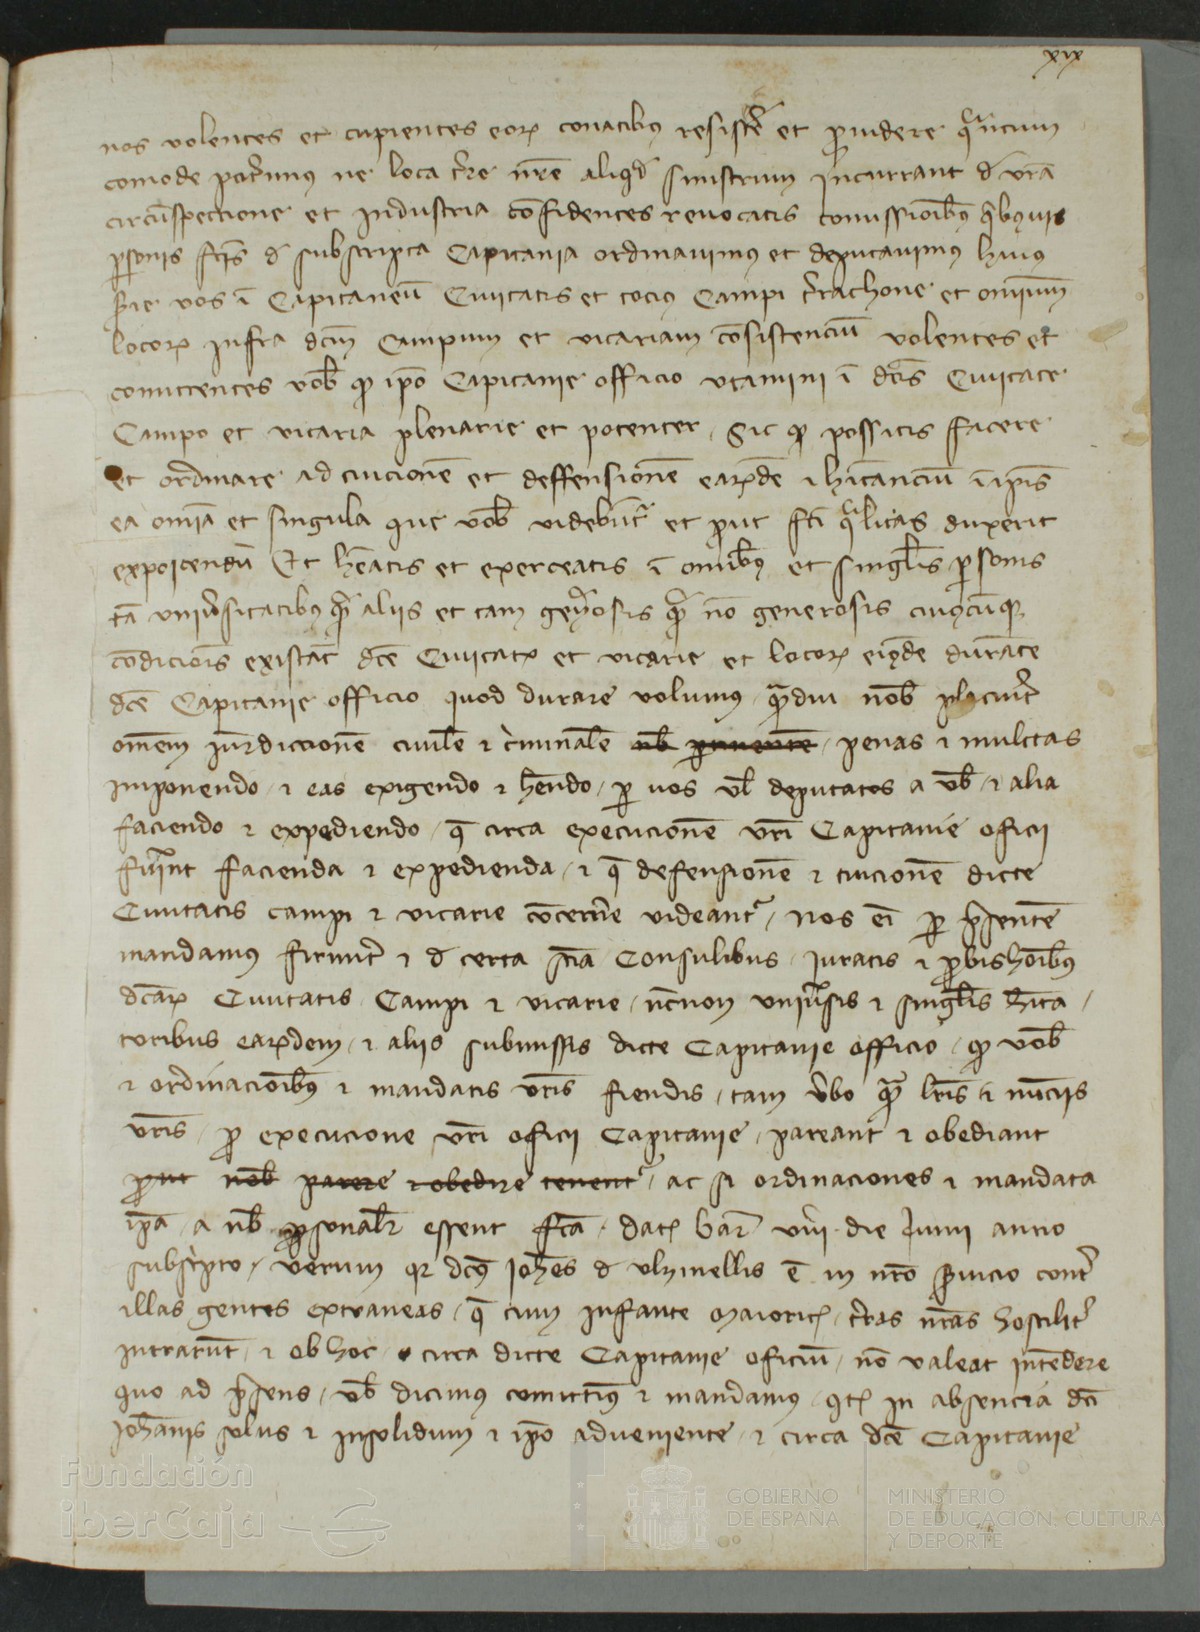 xix
nos volentes et cupientes eorz conatibus resistere et providere quantum
comode poterimus ne loca terre nostre aliquid sinistrum incurrant de vestra
circumspeccione et industria confidentes revocatis comissionibus quibusvis
personis factis de subscripta Capitania ordinavimus et deputavimus huius
serie vos in Capitaneum Civitatis et tocius Campi Terrachone et omnium
locorum infra dictum Campum et vicariam consistencium volentes et
comittentes vobis quod ipso Capitanie officio utamini in dictis Civitate
Campo et vicaria plenarie et potenter, Sic quod possitis facere
et ordinare ad tuicionem et deffensionem earumdem et habitancium in ipsis
ea omnia et singula que vobis videbuntur et prout facti qualitas duxerit
exposcendum Et habeatis et exerceatis in omnibus et singulis personis
tam universitatibus quam aliis et tam generosis quam non generosis cuiuscumque
condicionis existant dicte Civitatis et vicarie et locorum eiusdem durante
dicte Capitanie officio quod durare volumus, quamdiu nobis placuerit
omnem iurediccionem civilem et criminalem penas et mulctas
imponendo et eas exigendo et habendo, per vos vel deputatos a vobis, et alia
faciendo et expediendo, que circa execucionem vestri Capitanie oficii
fuerint facienda et expedienda, et que defensionem et tuicionem dicte
Civitatis campi et vicarie concernere videantur, Nos enim per presentem
mandamus firmiter et de certa sciencia Consulibus, Iuratis et probishominibus
dictarum Civitatis, Campi et vicarie, necnon universis et singulis habita,
toribus earumdem, et aliis submissis dicte Capitanie officio, quod vobis
et ordinacionibus et mandatis vestris fiendis, tam verbo quam litteris et nunciis
vestris, pro execucione vestri oficii Capitanie, pareant et obediant
prout nobis parere et obedire tenentur, ac si ordinaciones et mandata
ipsa, a nobis personaliter essent facta. Datum Barchinone viii die Junii anno
subscripto, Verum quia dictus Iohannes de ulzinellis est in nostro servicio contra
illas gentes extraneas, que cum Infante Maioricarum, terras nostras hostiliter
intrarunt, et ob hoc circa dicte Capitanie oficium, non valeat intendere
quo ad presens, vobis dicimus comittimus et mandamus, quatenus in absencia dicti
Iohannis solus et insolidum et ipso adveniente, et circa dicte Capitanie
Fundación
iberCaja
GOBIERNO
DE ESPAÑA
MINISTERIO
DE EDUCACIÓN, CULTURA
Y DEPORTE